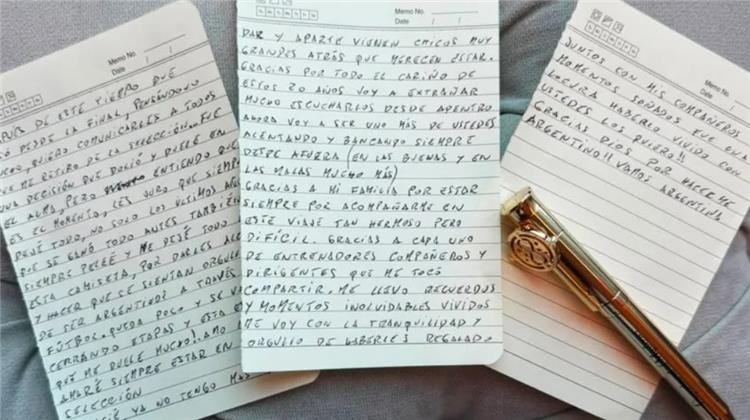 Memo No.
Date / /
PUÉS DE ESTE TIEMPO QUE
DESDE LA FINAL, PENSÁNDOLO
QUIERO COMUNICARLES A TODOS
ME RETIRO DE LA SELECCIÓN.. FUE
UNA DECISIÓN QUE DOLIÓ Y DUELE EN
EL ALMA, PERO ENTIENDO QUE
ES EL MOMENTO, LES JURO QUE SIEMPRE
DEJÉ TODO, NO SOLO LOS ÚLTIMOS AÑOS
QUE SE GANÓ TODO ANTES TAMBIÉN
SIEMPRE PELEÉ Y ME DEJÉ TODO
ESTA CAMISETA, POR DARLES
Y HACER QUE SE SIENTAN
DE SER ARGENTINOS A TRAVÉS
FÚTBOL. QUEDA POCO Y SE VA
CERRANDO ETAPAS Y ESTA
QUÉ ME DUELE MUCHO! AMO
AMARÉ SIEMPRE ESTAR EN
SELECCIÓN
YA NO TENGO MÁS
Memo No.
Date / /
DAR Y APARTE VIENEN CHICOS MUY
GRANDES ATRÁS QUE MERECEN ESTAR.
GRACIAS POR TODO EL CARIÑO DE
ESTOS 20 AÑOS VOY A EXTRAÑAR
MUCHO ESCUCHARLOS DESDE ADENTRO
AHORA VOY A SER UNO MÁS DE USTEDES
ALENTANDO Y BANCANDO SIEMPRE
DESDE AFUERA (EN LAS BUENAS Y EN
LAS MALAS MUCHO MÁS)
GRACIAS A MI FAMILIA POR ESTAR
SIEMPRE POR ACOMPAÑARME EN
ESTE VIAJE TAN HERMOSO PERO
DIFÍCIL. GRACIAS A CADA UNO
DE ENTRENADORES COMPAÑEROS Y
DIRIGENTES QUE ME TOCÓ
COMPARTIR. ME LLEVO RECUERDOS
Y MOMENTOS INOLVIDABLES VIVIDOS
ME VOY CON LA TRANQUILIDAD Y
ORGULLO DE HABERLES REGALADO
Memo No.
Date / /
JUNTOS CON MIS COMPAÑEROS
MOMENTOS SOÑADOS FUE UNA
LOCURA HABERLO VIVIDO CON
USTEDES LOS QUIERO!!
GRACIAS DIOS POR HACERME
ARGENTINO!! VAMOS ARGENTINA